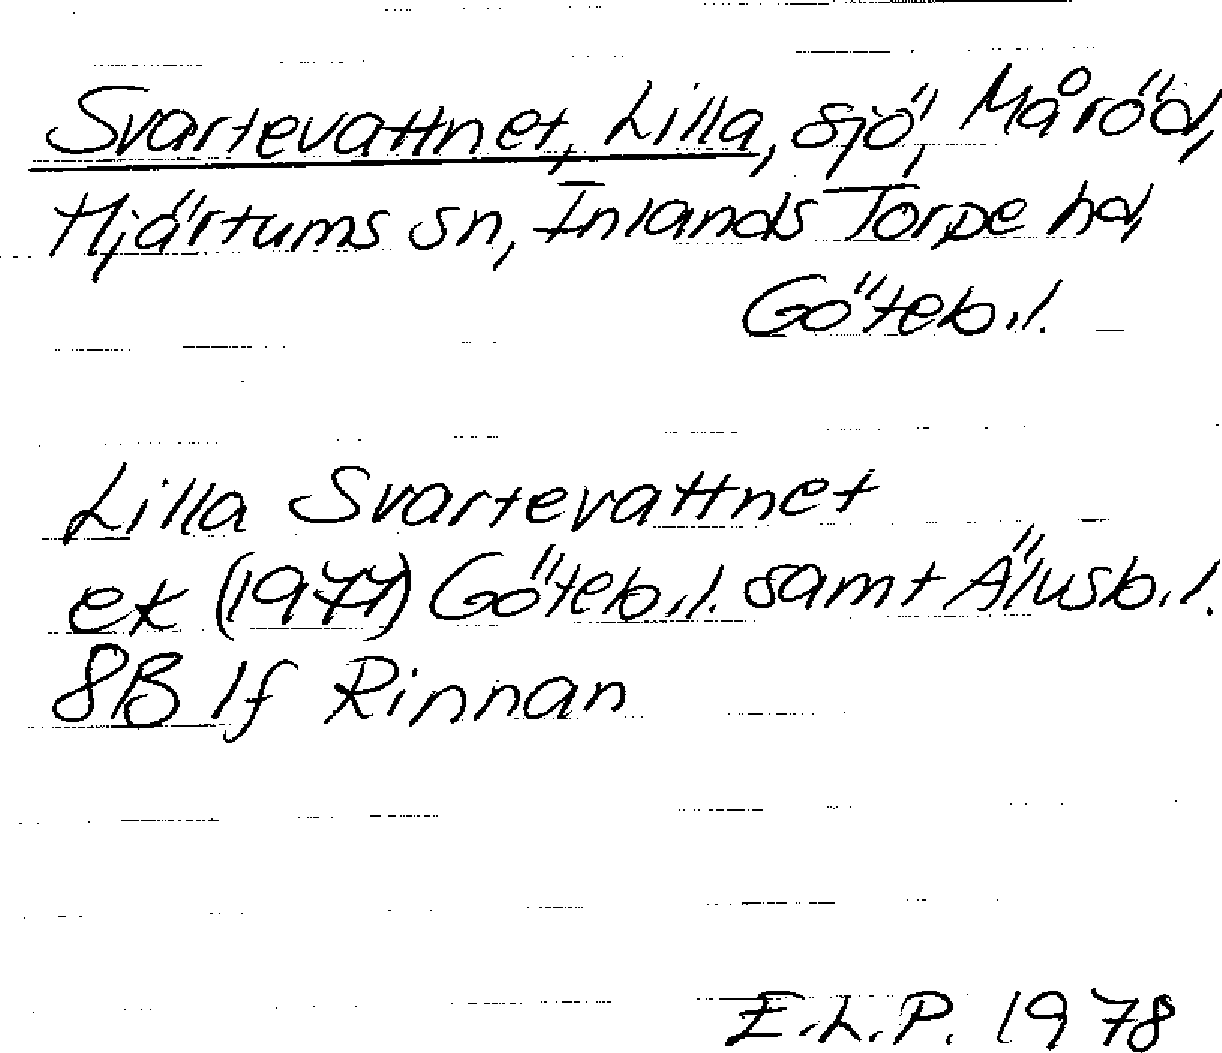 Svartevattnet, Lilla, sjö, Måröd,
Hjärtums sn, Inlands Torpe hd,
Göteb.l.
Lilla Svartevattnet
ek (1977) Göteb.l. samt Älvsb.l.
8B 1f Rinnan
E.L.P. 1978